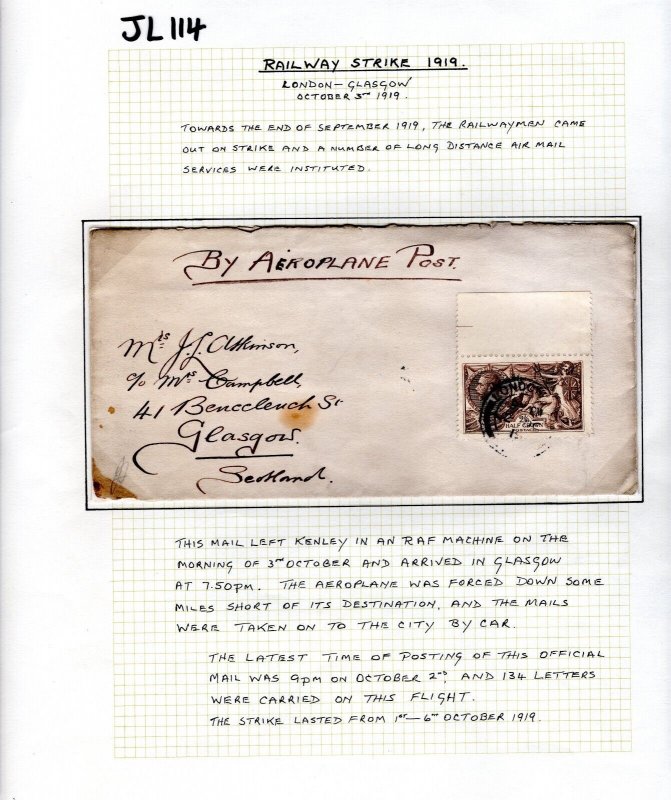 JL114
RAILWAY STRIKE 1919.
LONDON-GLASGOW
OCTOBER 3RD 1919.
TOWARDS THE END OF SEPTEMBER 1919, THE RAILWAYMEN CAME
OUT ON STRIKE AND A NUMBER OF LONG DISTANCE AIR MAIL
SERVICES WERE INSTITUTED.
BY AEROPLANE POST.
Mrs J.L. Atkinson,
c/o Mrs Campbell,
41 Buccleuch St
Glasgow.
Scotland.
LONDON
HALF CROWN
THIS MAIL LEFT KENLEY IN AN RAF MACHINE ON THE
MORNING OF 3RD OCTOBER AND ARRIVED IN GLASGOW
AT 7.50PM. THE AEROPLANE WAS FORCED DOWN SOME
MILES SHORT OF ITS DESTINATION, AND THE MAILS
WERE TAKEN ON TO THE CITY BY CAR.
THE LATEST TIME OF POSTING OF THIS OFFICIAL
MAIL WAS 9PM ON OCTOBER 2ND, AND 134 LETTERS
WERE CARRIED ON THIS FLIGHT.
THE STRIKE LASTED FROM 1ST-6TH OCTOBER 1919.